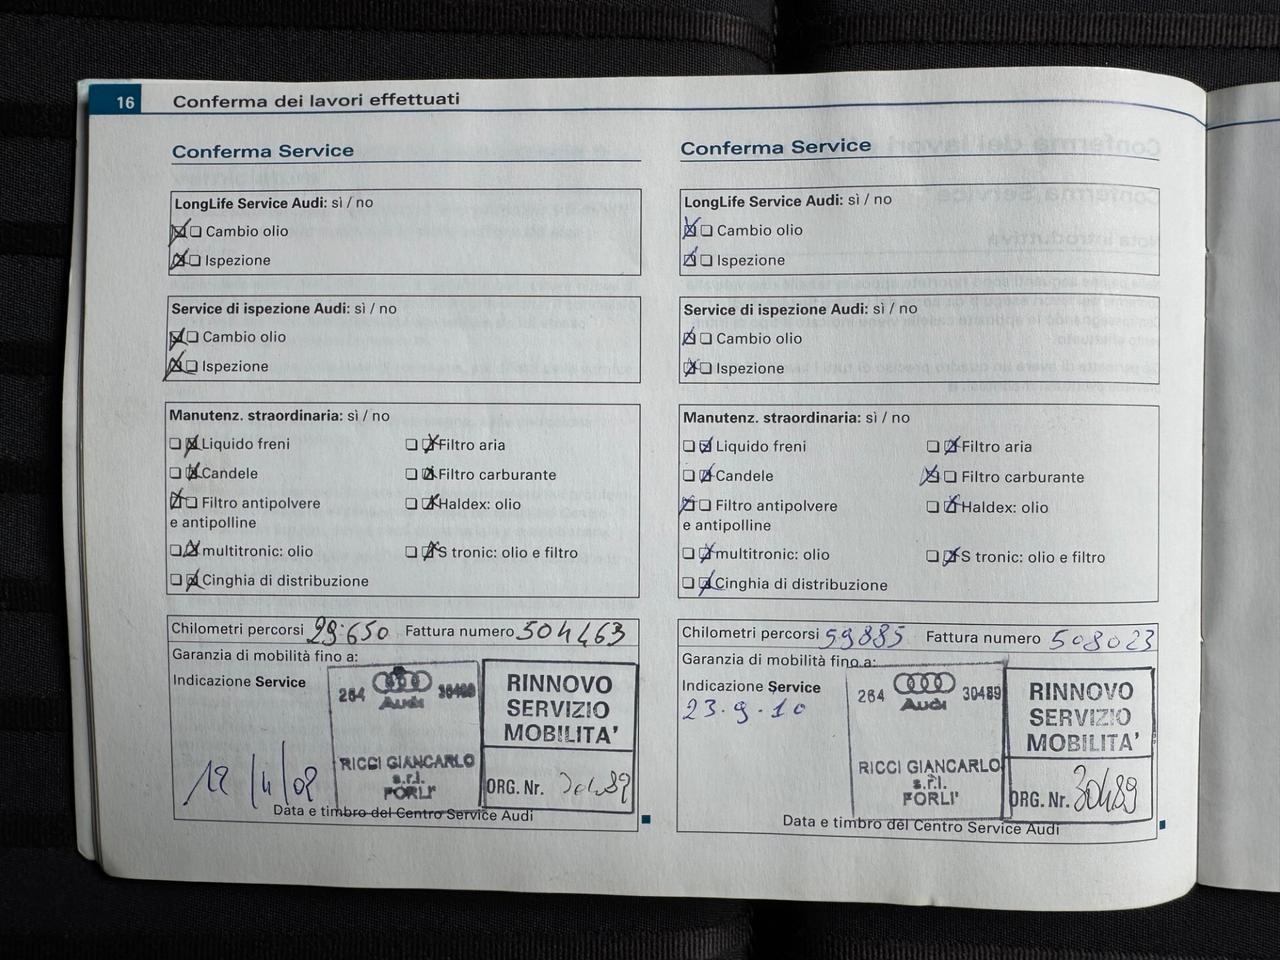 16 Conferma dei lavori effettuati
Conferma Service
LongLife Service Audi: sì / no
Cambio olio
Ispezione
Service di ispezione Audi: sì / no
Cambio olio
Ispezione
Manutenz. straordinaria: sì / no
Liquido freni Filtro aria
Candele Filtro carburante
Filtro antipolvere Haldex: olio
e antipolline
multitronic: olio S tronic: olio e filtro
Cinghia di distribuzione
Chilometri percorsi 29.650 Fattura numero 504463
Garanzia di mobilità fino a:
Indicazione Service
264 Audi
RICCI GIANCARLO
s.r.l.
FORLI'
RINNOVO
SERVIZIO
MOBILITA'
ORG. Nr. 30489
Data e timbro del Centro Service Audi
Conferma Service
LongLife Service Audi: sì / no
Cambio olio
Ispezione
Service di ispezione Audi: sì / no
Cambio olio
Ispezione
Manutenz. straordinaria: sì / no
Liquido freni Filtro aria
Candele Filtro carburante
Filtro antipolvere Haldex: olio
e antipolline
multitronic: olio S tronic: olio e filtro
Cinghia di distribuzione
Chilometri percorsi 59885 Fattura numero 508023
Garanzia di mobilità fino a:
Indicazione Service
23.9.10
264 Audi 30489
RICCI GIANCARLO
s.r.l.
FORLI'
RINNOVO
SERVIZIO
MOBILITA'
ORG. Nr. 30489
Data e timbro del Centro Service Audi